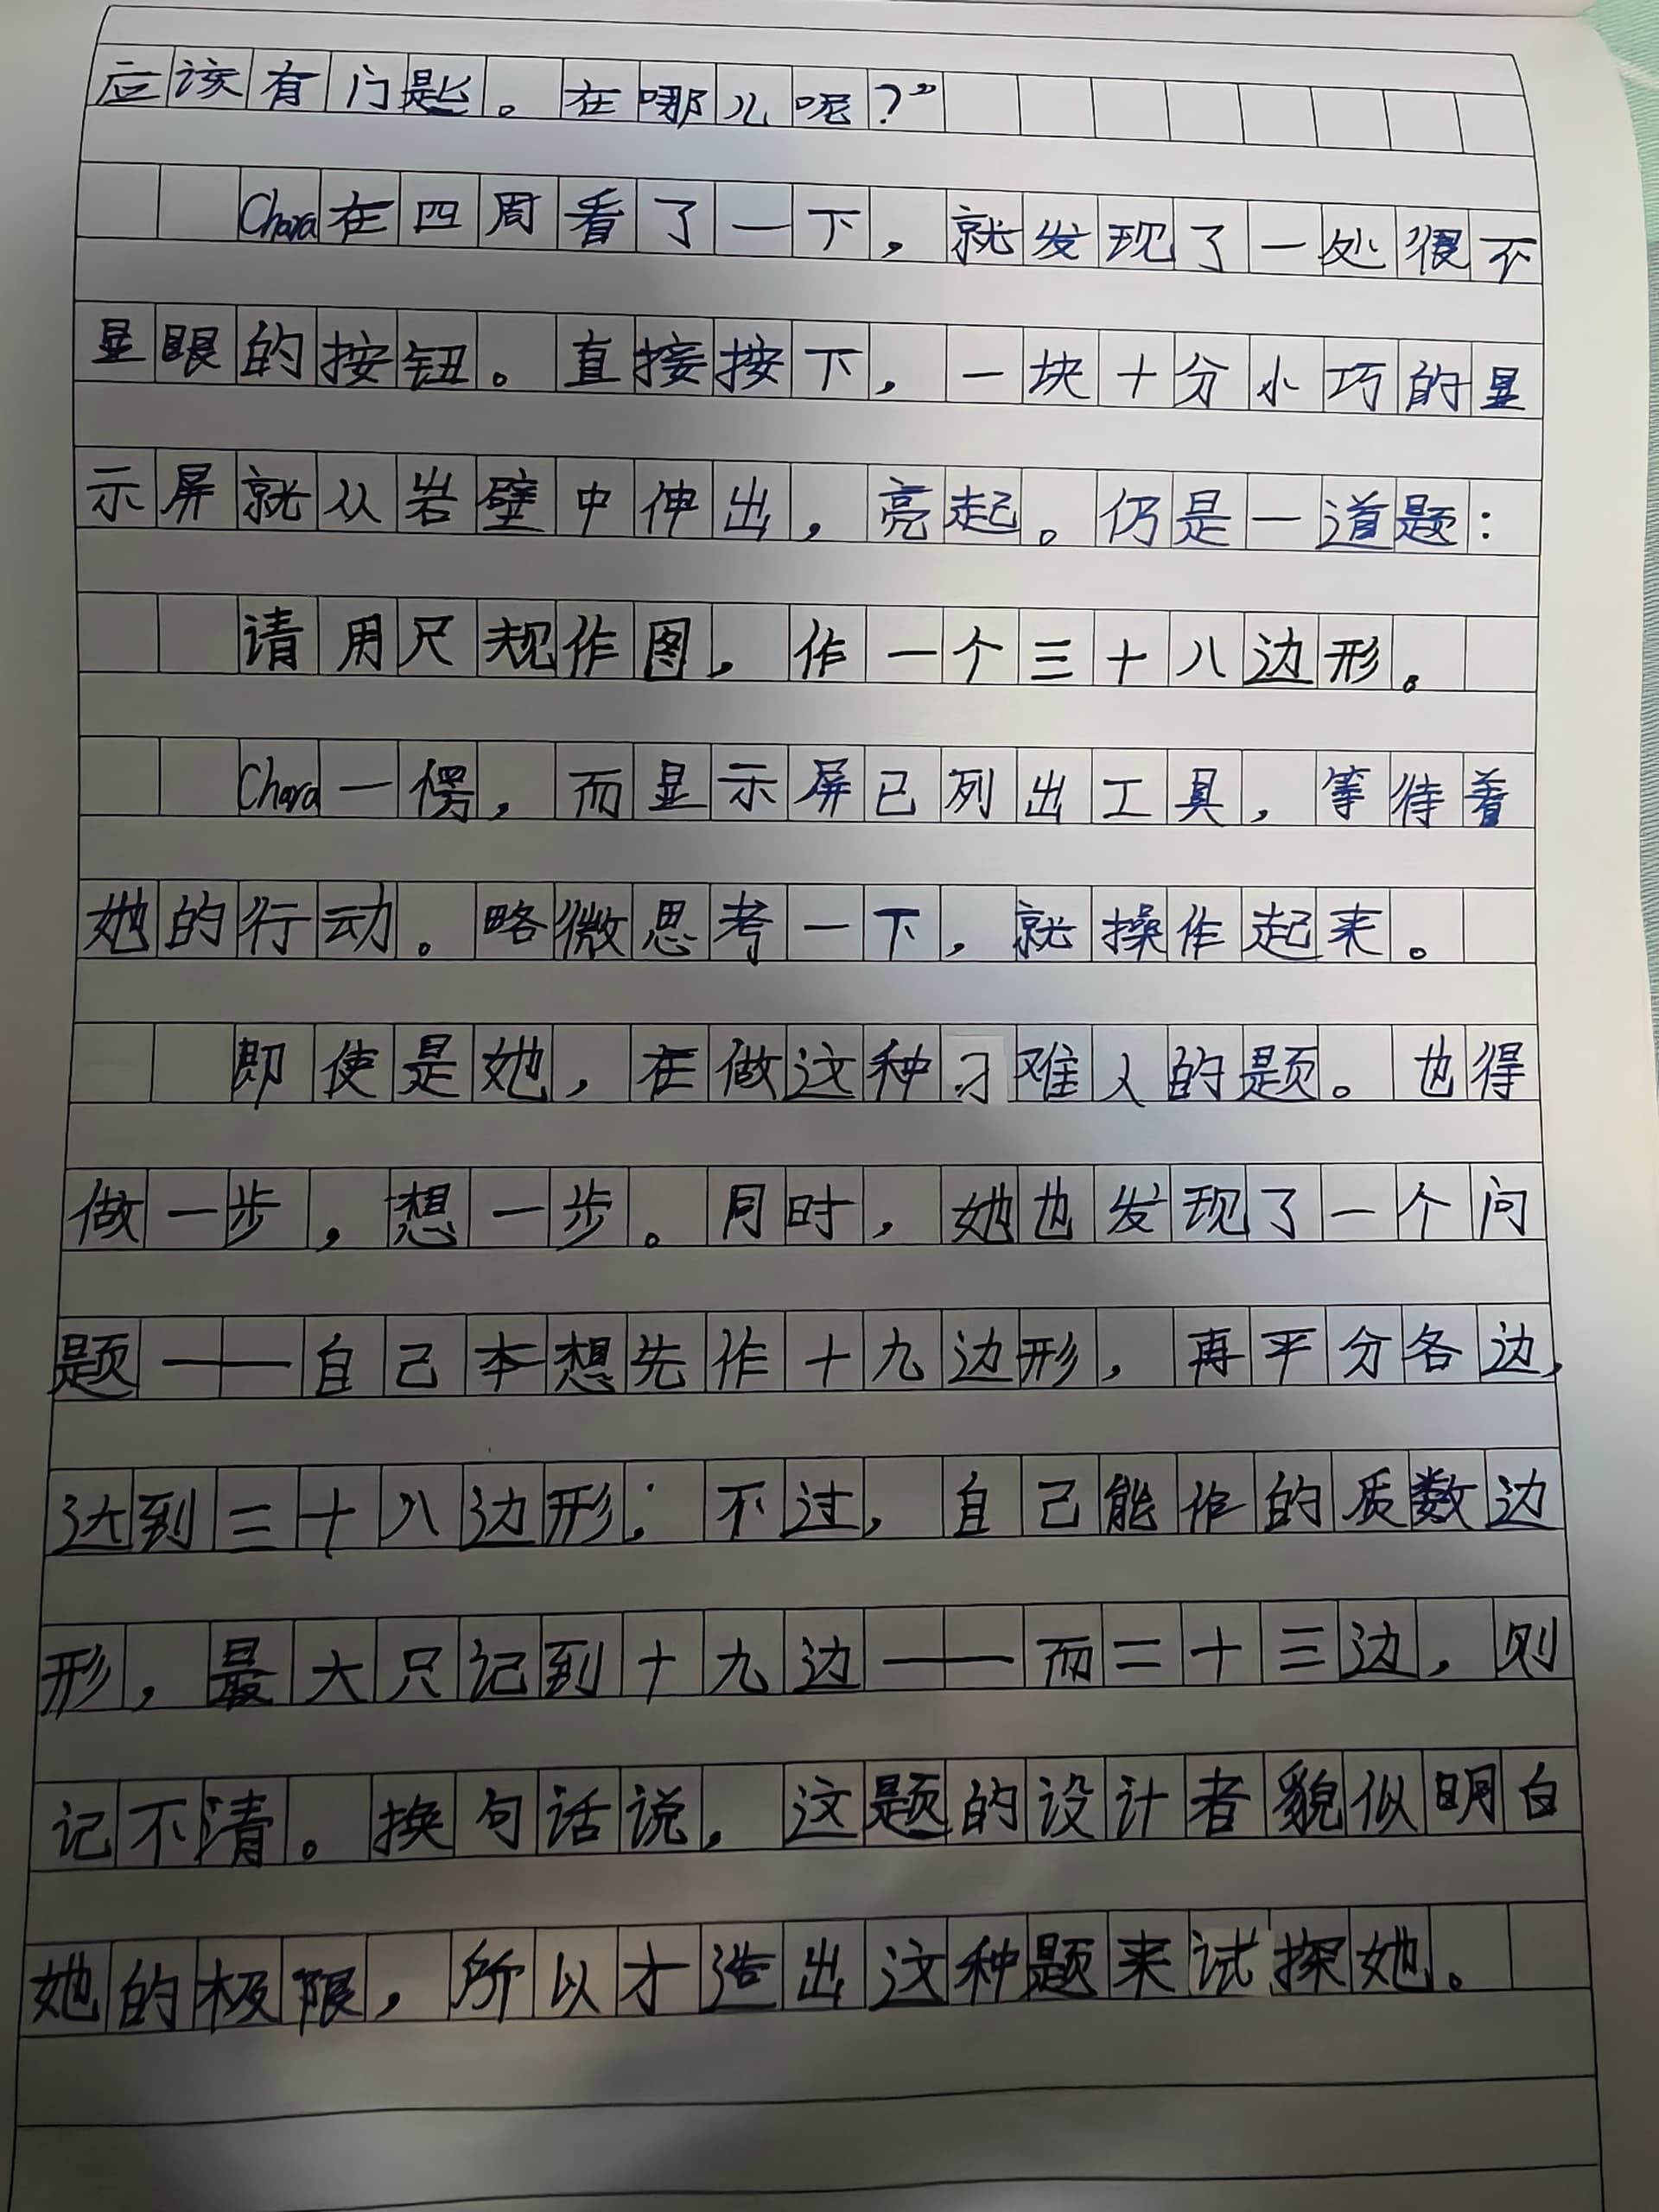 应该有门匙。在哪儿呢？”
Chara在四周看了一下，就发现了一处很不
显眼的按钮。直接按下，一块十分小巧的显
示屏就从岩壁中伸出，亮起。仍是一道题：
请用尺规作图，作一个三十八边形。
Chara一愣，而显示屏已列出工具，等待着
她的行动。略微思考一下，就操作起来。
即使是她，在做这种刁难人的题。也得
做一步，想一步。同时，她也发现了一个问
题——自己本想先作十九边形，再平分各边，
达到三十八边形；不过，自己能作的质数边
形，最大只记到十九边——而二十三边，则
记不清。换句话说，这题的设计者貌似明白
她的极限，所以才造出这种题来试探她。